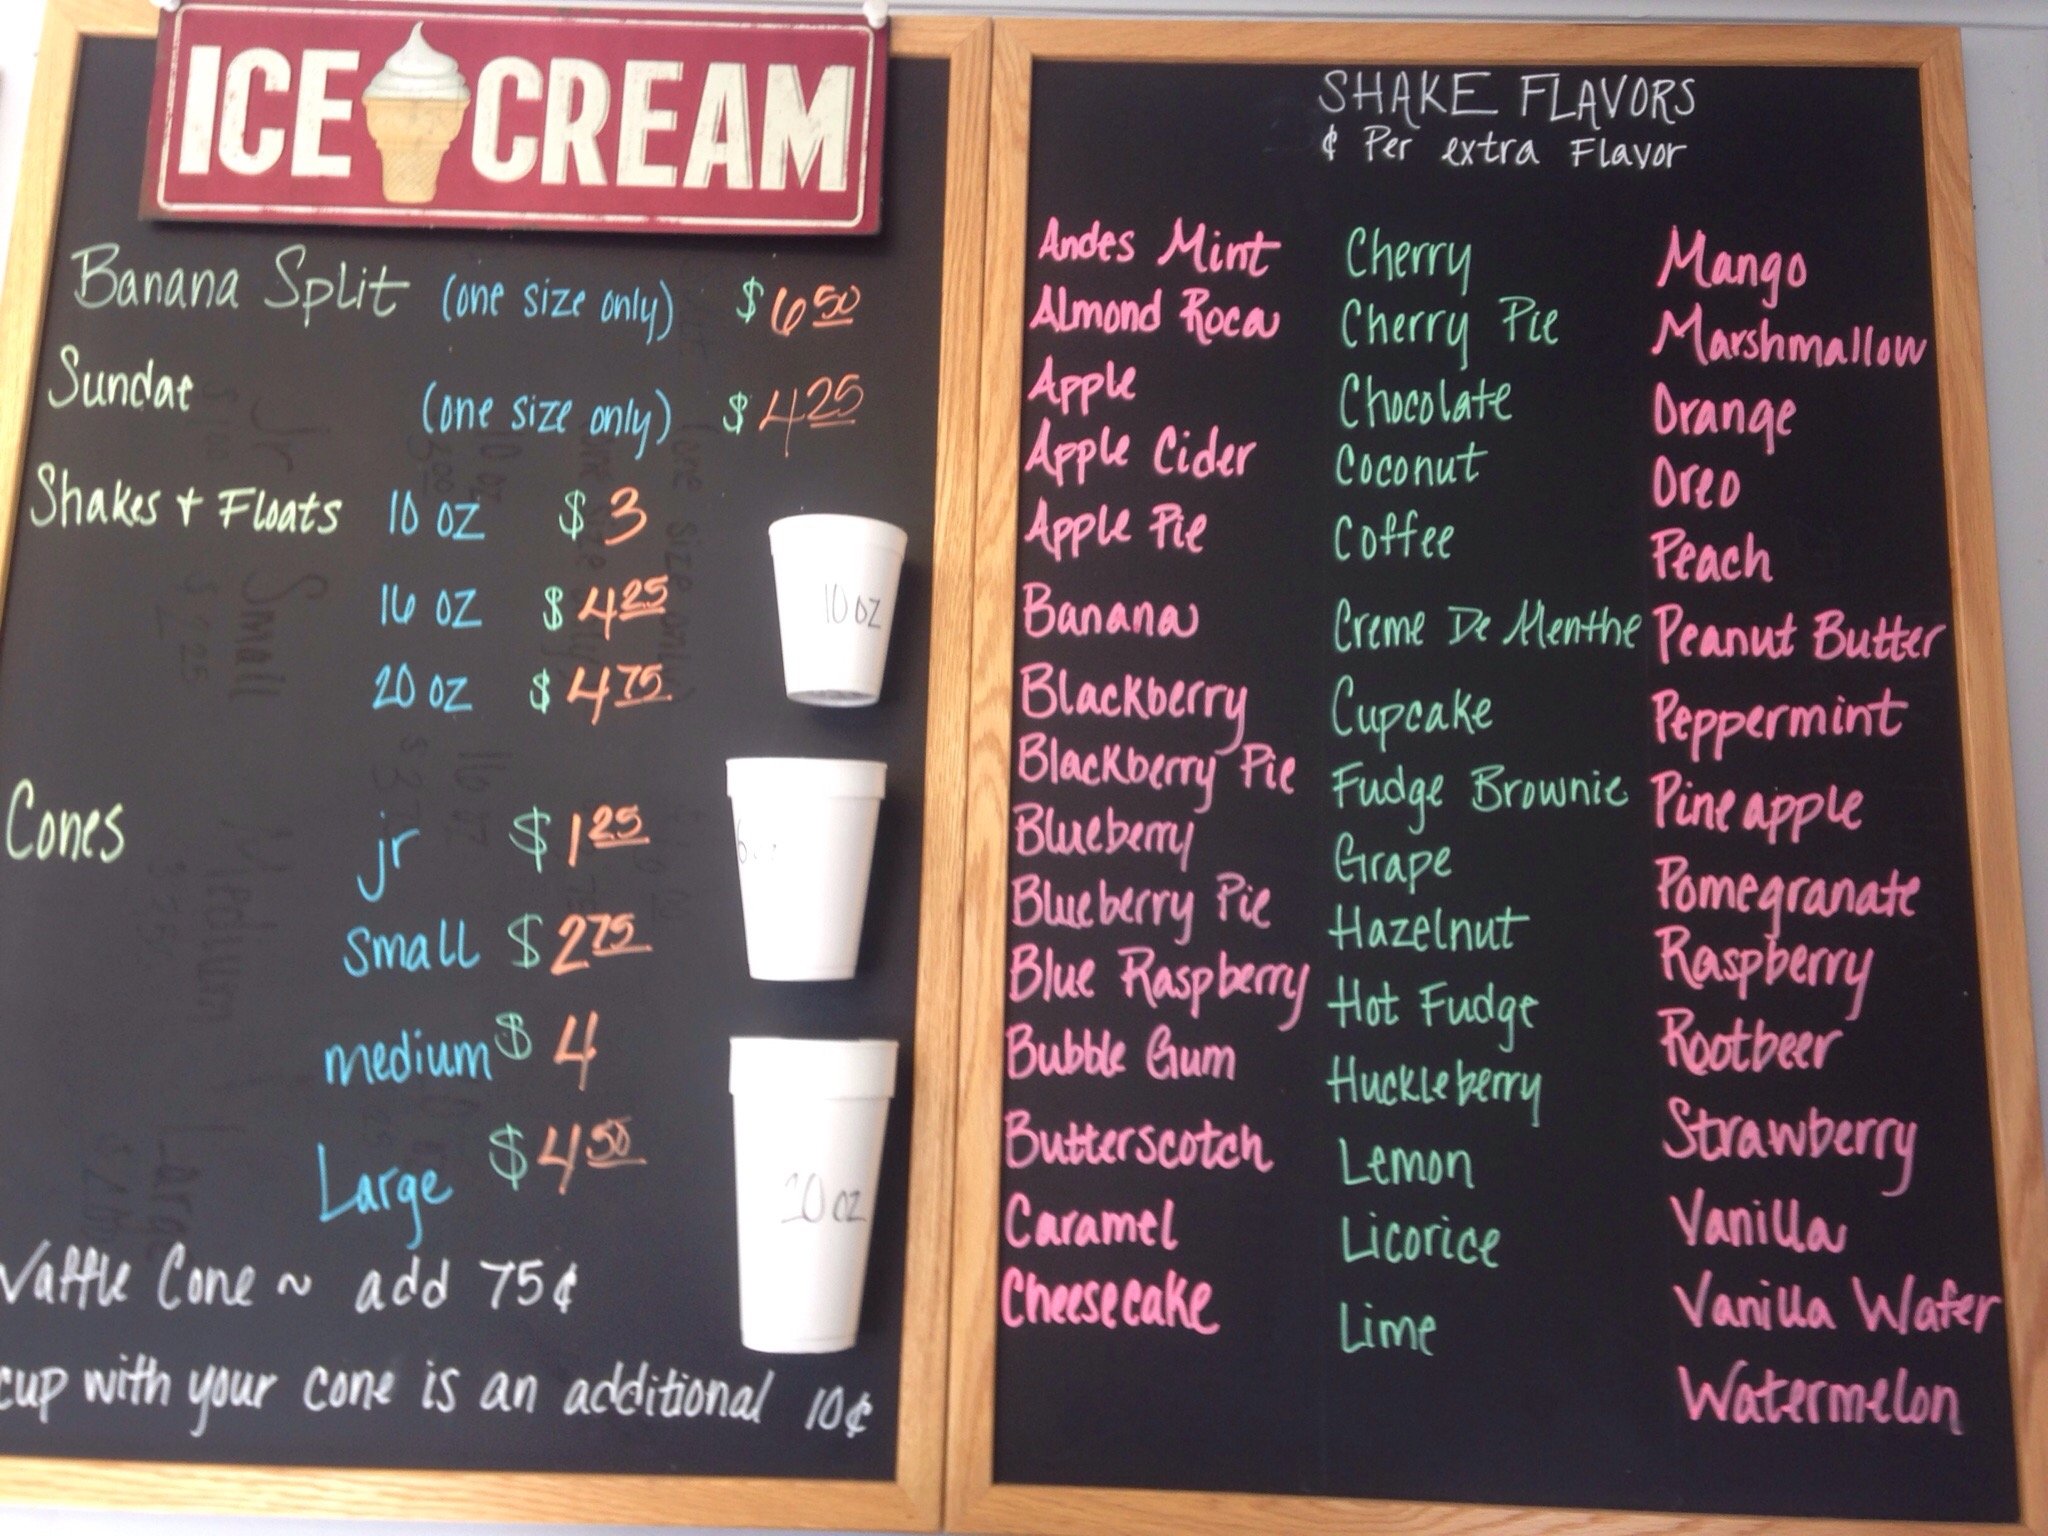 ICE CREAM
Banana Split (one size only) $6 50
Sundae (one size only) $4 25
Shakes + Floats 10 oz $3
16 oz $4 25
20 oz $4 75
Cones jr $1 25
small $2 75
medium $4
Large $4 50
Waffle Cone ~ add 75¢
cup with your cone is an additional 10¢
10 oz
20 oz
SHAKE FLAVORS
¢ Per extra Flavor
Andes Mint
Almond Roca
Apple
Apple Cider
Apple Pie
Banana
Blackberry
Blackberry Pie
Blueberry
Blueberry Pie
Blue Raspberry
Bubble Gum
Butterscotch
Caramel
Cheesecake
Cherry
Cherry Pie
Chocolate
Coconut
Coffee
Creme De Menthe
Cupcake
Fudge Brownie
Grape
Hazelnut
Hot Fudge
Huckleberry
Lemon
Licorice
Lime
Mango
Marshmallow
Orange
Oreo
Peach
Peanut Butter
Peppermint
Pineapple
Pomegranate
Raspberry
Rootbeer
Strawberry
Vanilla
Vanilla Wafer
Watermelon